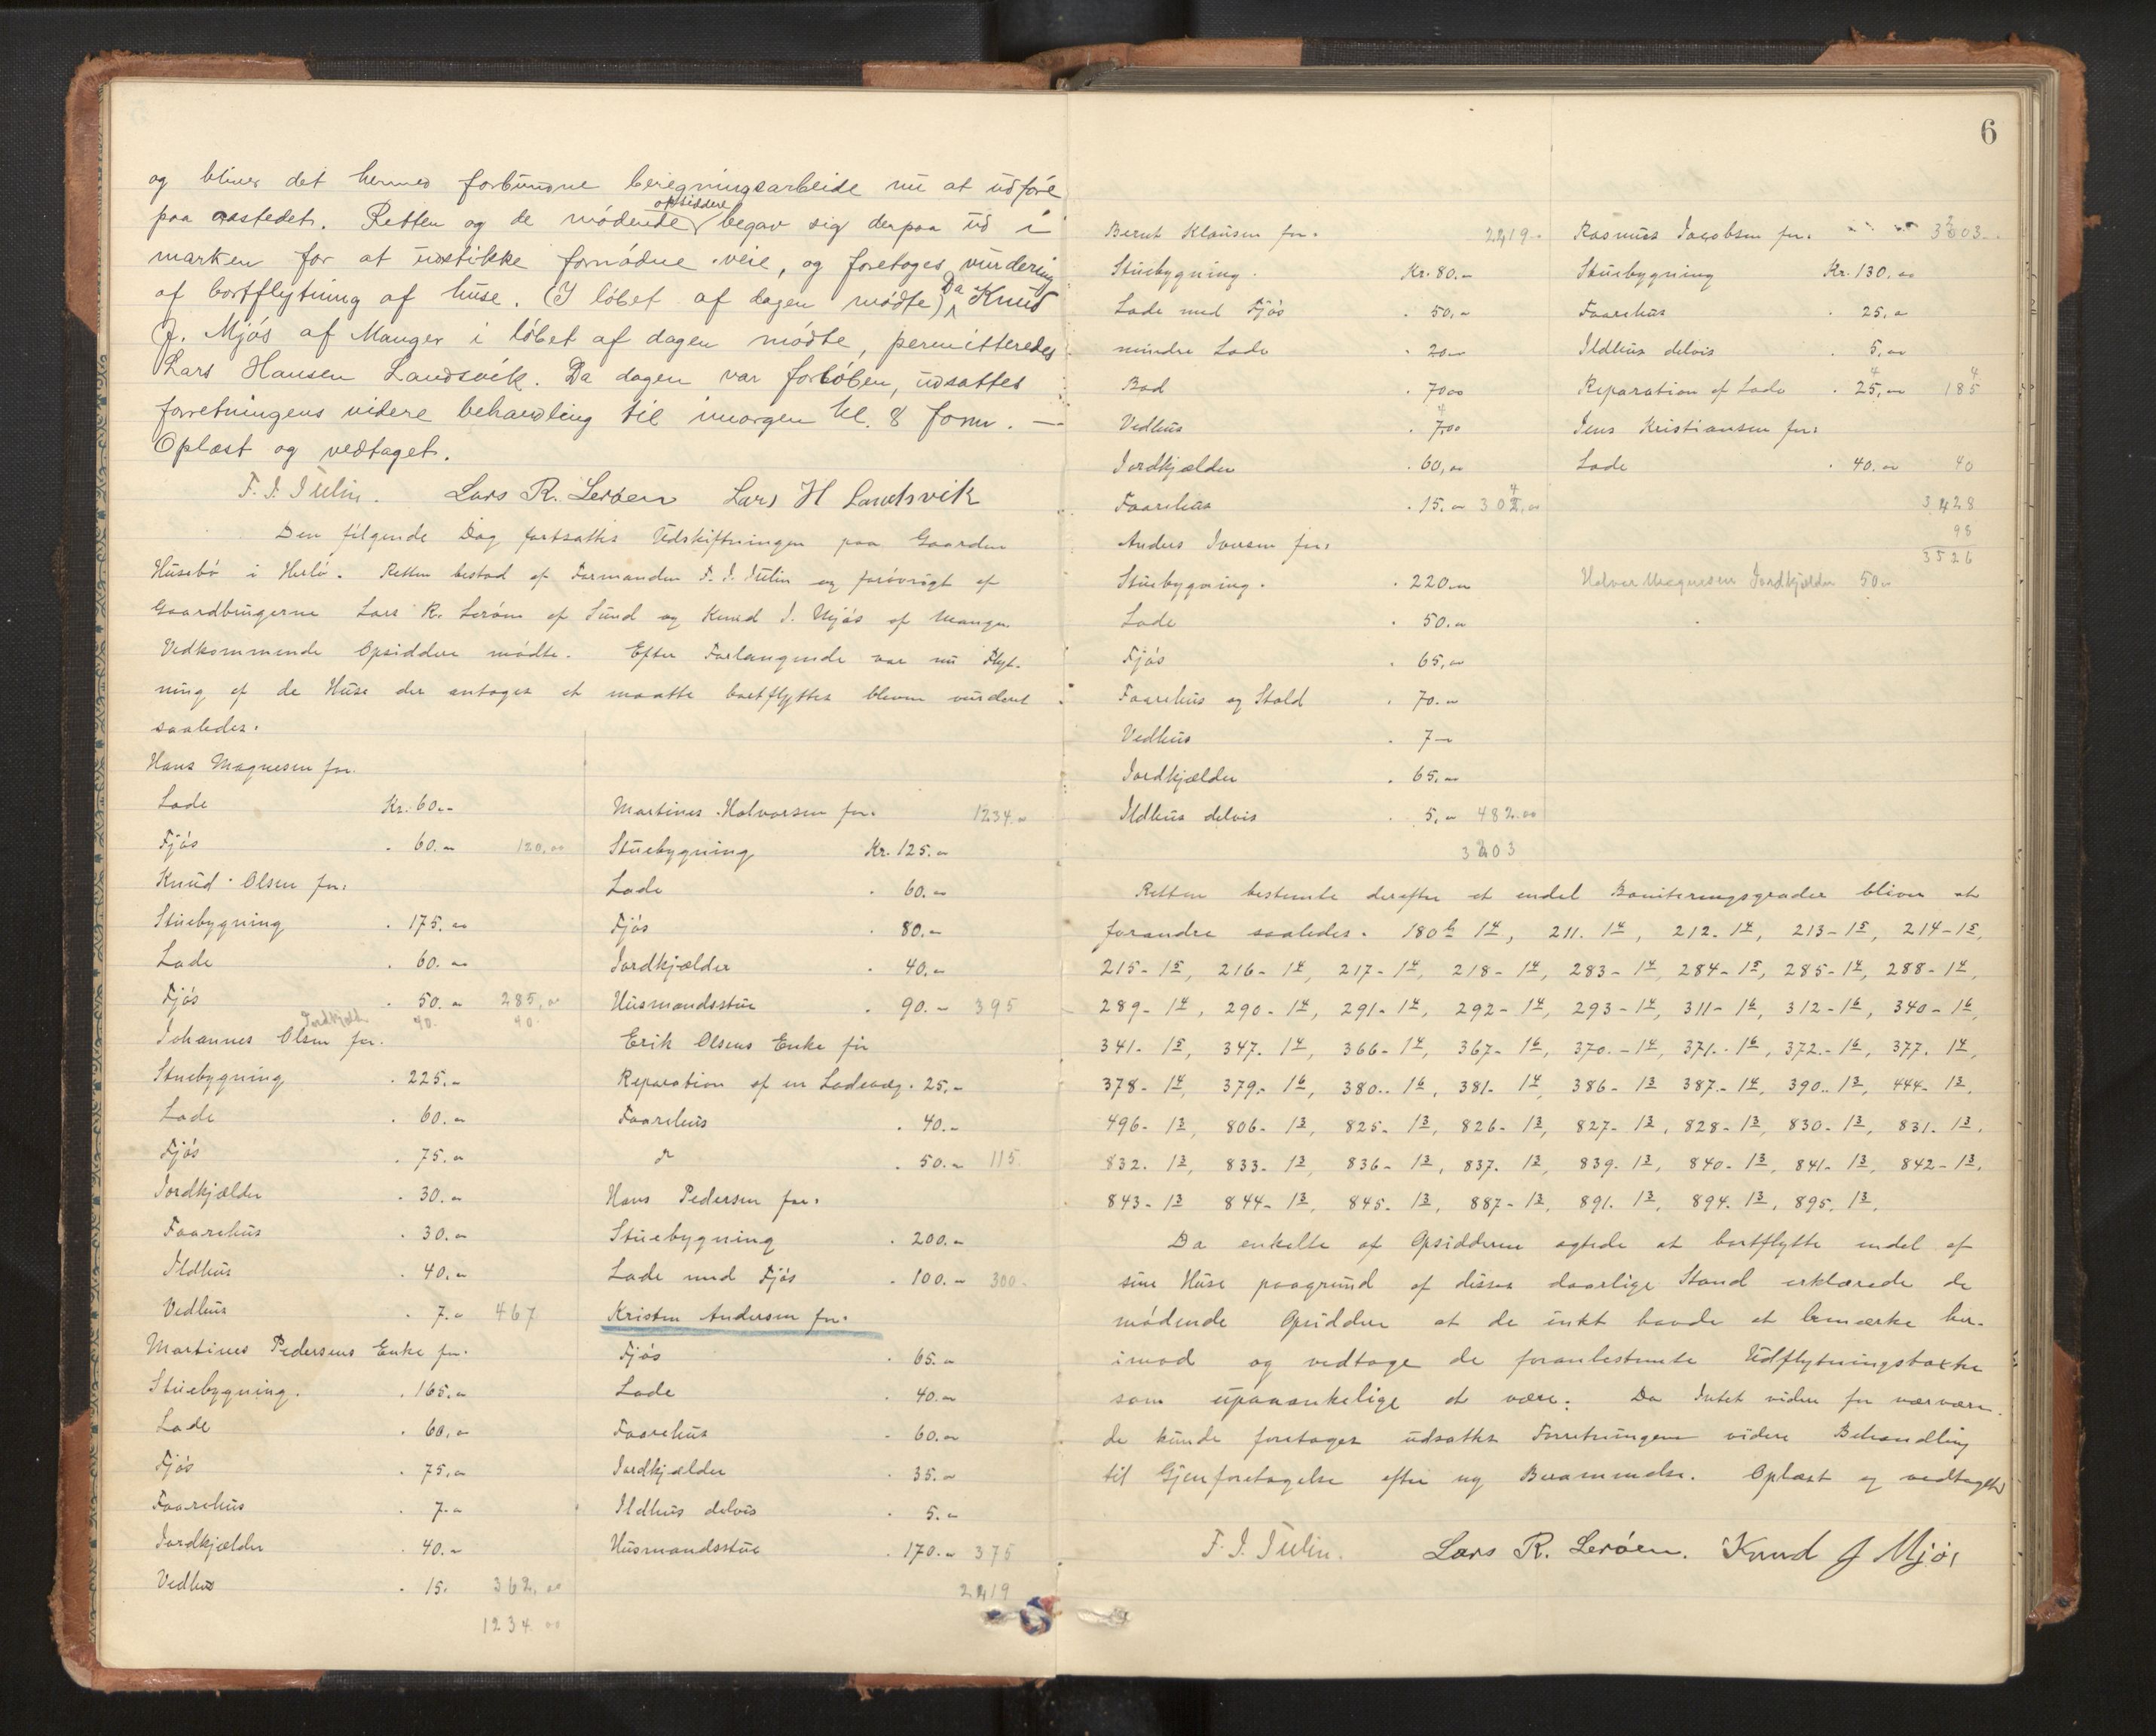 og bliver det hermed forbundne beregningsarbeide nu at udføre
paa aastedet. Retten og de mødende opsiddere begav sig derpaa ud i
marken for at udstikke fornødne veie, og foretages vurdering
af bortflytning af huse. (I løbet af dagen mødte) Da Knud
J. Mjøs af Manger i løbet af dagen mødte, permitteredes
Lars Hansen Landsvik. Da dagen var forløben, udsattes
forretningens videre behandling til imorgen kl. 8 form. —
Oplæst og vedtaget.
F. I. Tulin. Lars R. Lerøen Lars H Landsvik
Den følgende Dag fortsattes Udskiftningen paa Gaarden
Husebø i Herlø. Retten bestod af Formanden F. I. Tulin og forøvrigt af
Gaardbrugerne Lars R. Lerøen af Sund og Knud J. Mjøs af Manger.
Vedkommende Opsiddere mødte. Efter Forlangende var nu Flyt-
ning af de Huse der antages at maatte bortflyttes bleven vurderet
saaledes:
Hans Magnesen for.
Lade Kr. 60.-
Fjøs . 60.- 120,00
Knud Olsen for:
Stuebygning . 175.00
Lade . 60.00
Fjøs . 50.- 285,00
Jordkjeld 40. 40.
Johannes Olsen for.
Stuebygning . 225.-
Lade . 60.-
Fjøs . 75.-
Jordkjælder . 30.-
Faarehus . 30.-
Ildhus . 40.-
Vedhus . 7.- 467
Martines Pedersens Enke for.
Stuebygning. . 165.-
Lade . 60.-
Fjøs . 75,-
Faarehus . 7.-
Jordkjælder . 40.-
Vedhus . 15. 362,00
1234.00
Martines Halvorsen for. 1234.-
Stuebygning Kr. 125.-
Lade . 60.-
Fjøs . 80.-
Jordkjælder . 40.-
Husmandsstue . 90.- 395
Erik Olsens Enke for
Reparation af en Ladevæg . 25,-
Faarehus . 40.-
do . 50.- 115
Hans Pedersen for.
Stuebygning . 200.-
Lade med Fjøs . 100.- 300.
Kristen Andersen for.
Fjøs . 65.-
Lade . 40.-
Faarehus . 60.-
Jordkjælder . 35.-
Ildhus delvis . 5.-
Husmandsstue . 170.- 375
2419
6
Bernt Klausen for. 2419.-
Stuebygning. Kr. 80.-
Lade med Fjøs . 50.-
mindre Lade . 20.-
Bod . 70 00
Vedhus . 7,00
Jordkjælder . 60,00
Faarehus . 15.- 302,00
Anders Iversen for:
Stuebygning. . 220.-
Lade . 50.-
Fjøs . 65,-
Faarehus og Stald . 70.-
Vedhus . 7-
Jordkjælder . 65.-
Ildhus delvis . 5.- 482.00
3203
Rasmus Jacobsen for. 3203.-
Stuebygning Kr. 130.00
Faarehus . 25.-
Ildhus delvis . 5,-
Reparation af Lade . 25,- 185
Jens Kristiansen for:
Lade . 40.- 40
3428
98
3526
Halvor Magnesen Jordkjælder 50-
Retten bestemte derefter at endel Boniteringsgrader bliver at
forandre saaledes. 180b 14, 211. 14, 212. 14, 213- 15, 214- 15,
215- 15, 216- 14, 217- 14, 218- 14, 283- 14, 284- 15, 285- 14, 288- 14,
289- 14, 290- 14, 291- 14, 292- 14, 293- 14, 311- 16, 312- 16, 340- 16,
341- 15, 347. 14, 366- 14, 367- 16, 370.- 14, 371.- 16, 372.- 16, 377. 14,
378- 14, 379.- 16, 380.. 16, 381- 14, 386- 13 387.- 14, 390.. 13, 444- 13,
496- 13, 806- 13, 825- 13, 826- 13, 827- 13, 828- 13, 830- 13, 831. 13,
832. 13, 833- 13, 836- 13, 837. 13, 839. 13, 840- 13, 841- 13, 842- 13,
843- 13 844- 13, 845. 13, 887- 13, 891. 13, 894. 13, 895. 13.
Da enkelte af Opsidderne agtede at bortflytte endel af
sine Huse paagrund af disses daarlige Stand erklærede de
mødende Opsiddere at de intet havde at bemærke her-
imod og vedtage de foranbestemte Udflytningstaxter
som upaaankelige at være. Da Intet videre for nærværen-
de kunde foretages udsattes Forretningens videre Behandling
til Gjenforetagelse efter ny Berammelse. Oplæst og vedtaget
F. I. Tulin. Lars R. Lerøen. Knud J Mjøs